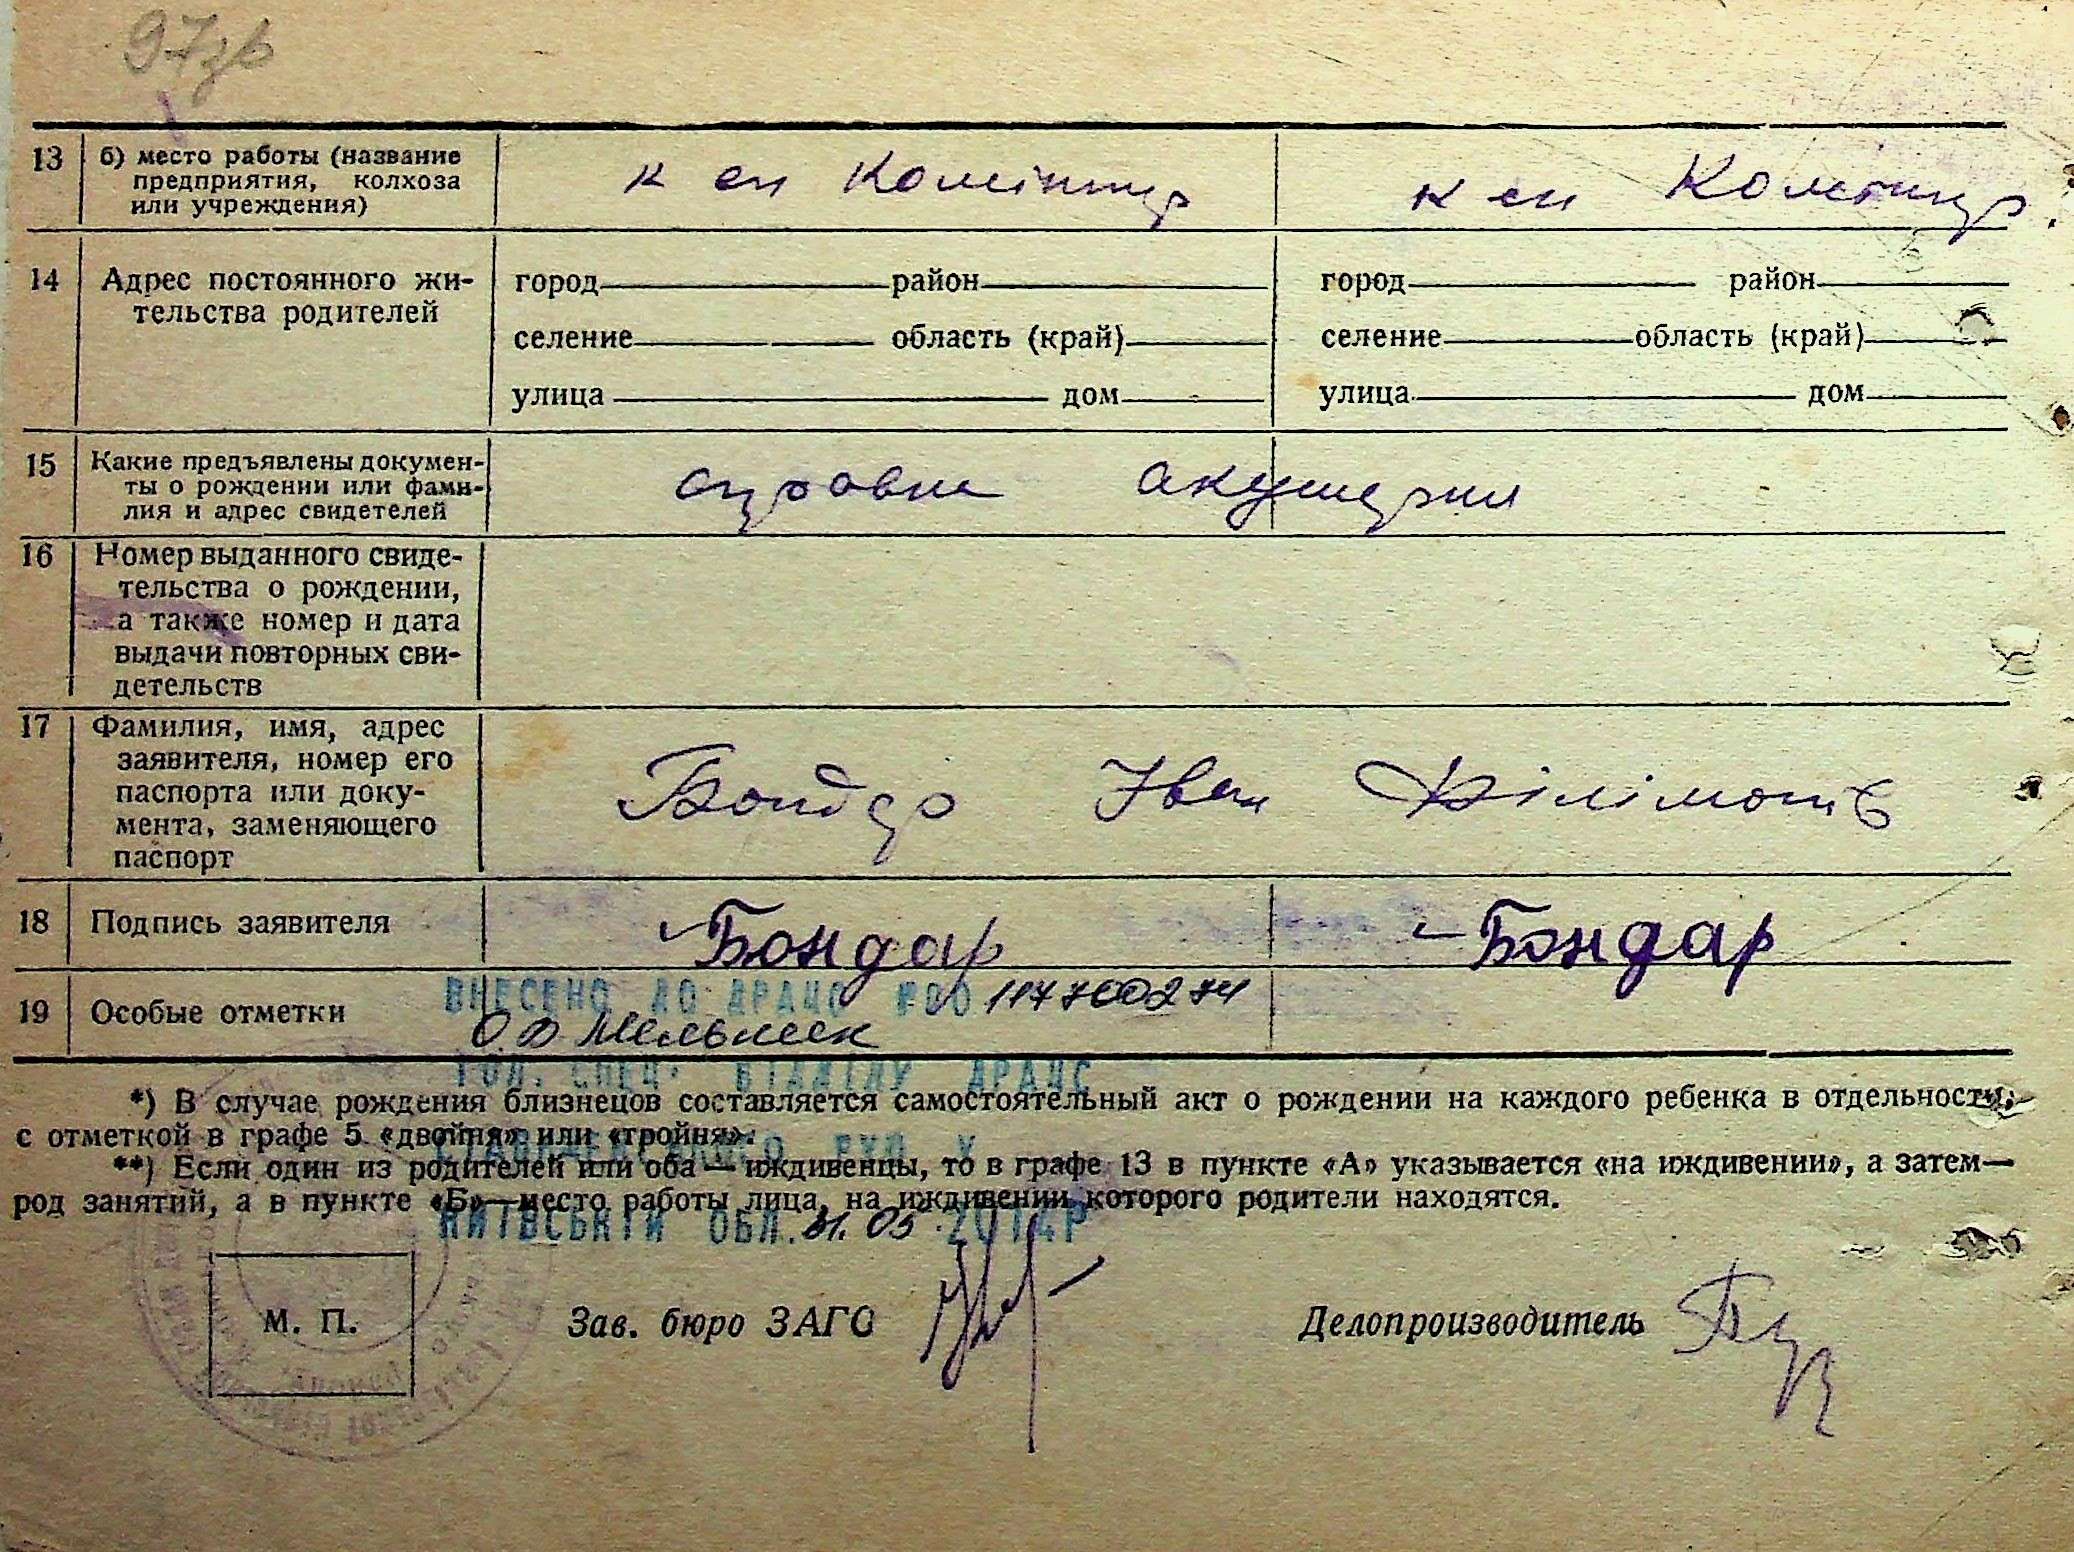 97зв
13 б) место работы (название
предприятия, колхоза
или учреждения)
к ен Комінтер
к ен Комінтер.
14 Адрес постоянного жи-
тельства родителей
город район город район
селение область (край) селение область (край)
улица дом улица дом
15 Какие предъявлены докумен-
ты о рождении или фами-
лия и адрес свидетелей
справка акушерки
16 Номер выданного свиде-
тельства о рождении,
а также номер и дата
выдачи повторных сви-
детельств
17 Фамилия, имя, адрес
заявителя, номер его
паспорта или доку-
мента, заменяющего
паспорт
Бондар Іван Філімонів
18 Подпись заявителя Бондар Бондар
19 Особые отметки
ВНЕСЕНО ДО ДРАЦС
О.В. Мельник
ГОЛ. СПЕЦ. ВІДДІЛУ ДРАЦС
*) В случае рождения близнецов составляется самостоятельный акт о рождении на каждого ребенка в отдельности,
с отметкой в графе 5 «двойня» или «тройня».
СТАВИЩЕНСЬКОГО РУЮ У
**) Если один из родителей или оба — иждивенцы, то в графе 13 в пункте «А» указывается «на иждивении», а затем—
род занятий, а в пункте «Б»—место работы лица, на иждивении которого родители находятся.
КИЇВСЬКІЙ ОБЛ. 2014Р
М. П. Зав. бюро ЗАГС Делопроизводитель